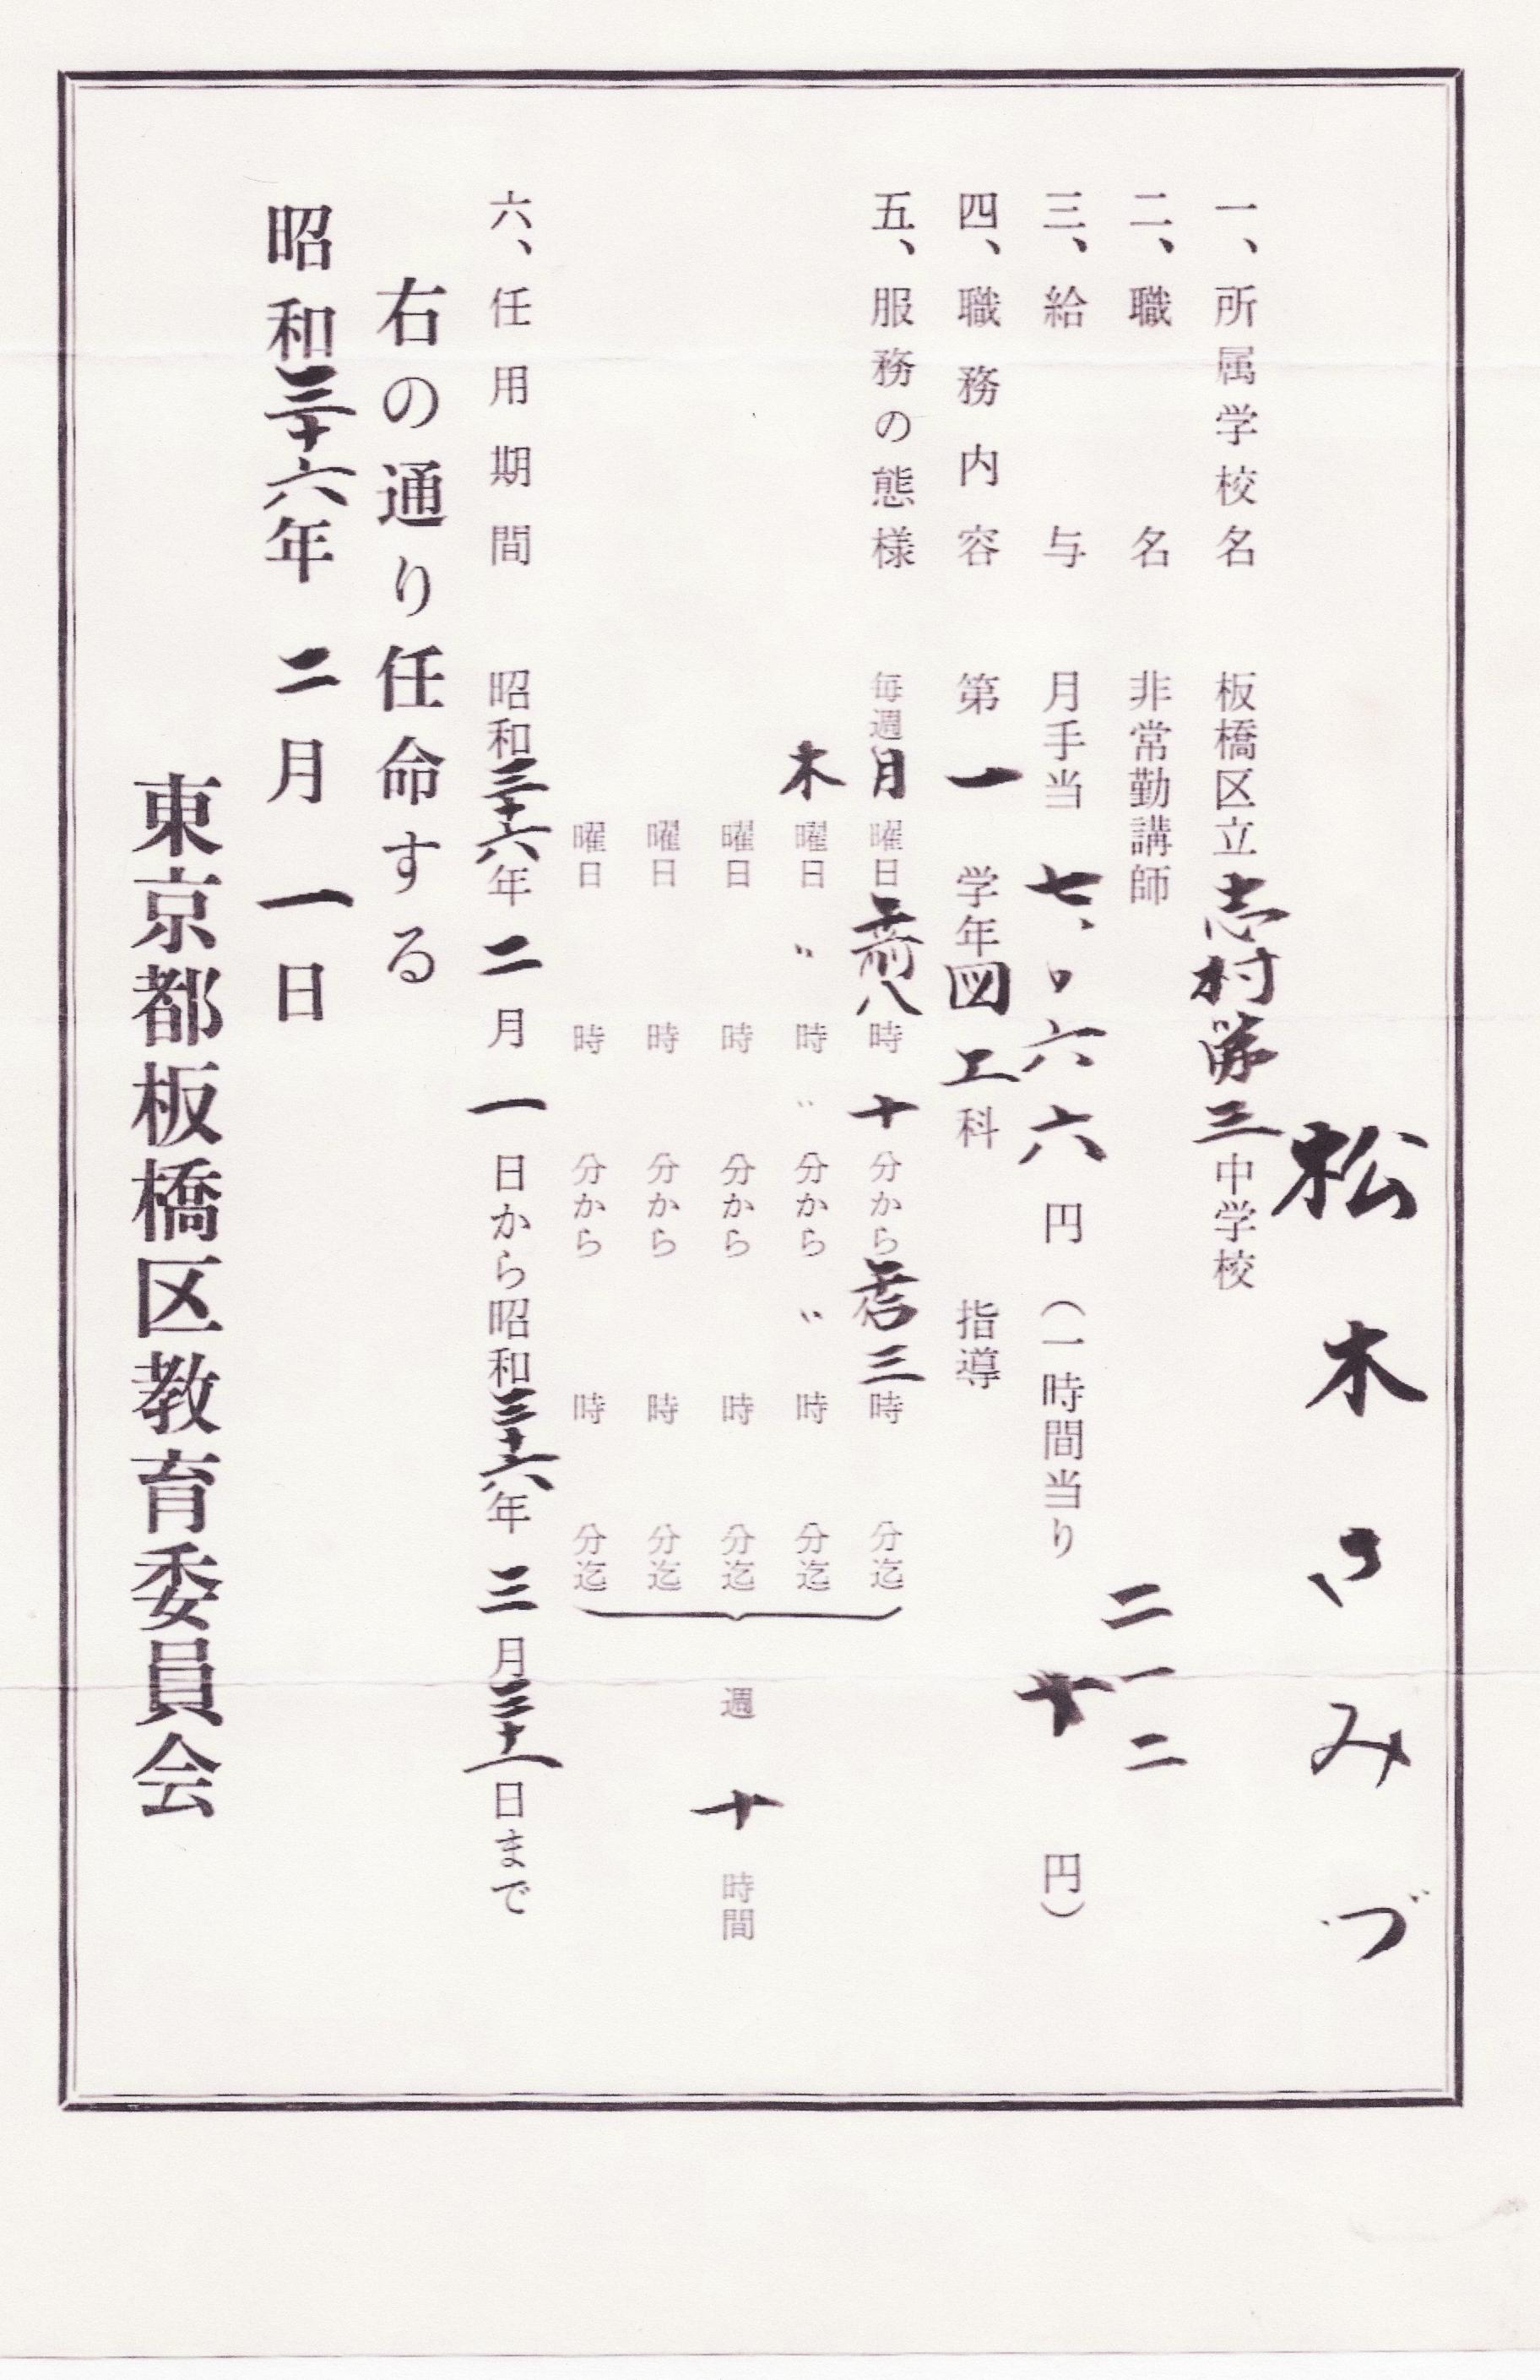 松木さみづ
一、所属学校名 板橋区立志村第三中学校
二、職名 非常勤講師
三、給与 月手当 七、〇六六円(一時間当り 二一二円)
四、職務内容 第一学年図工科 指導
五、服務の態様 毎週月曜日午前八時十分から午后三時 分迄
木曜日〃時〃分から〃時 分迄
曜日 時 分から 時 分迄
曜日 時 分から 時 分迄
曜日 時 分から 時 分迄
週十時間
六、任用期間 昭和三十六年二月一日から昭和三十六年三月三十一日まで
右の通り任命する
昭和三十六年二月一日
東京都板橋区教育委員会